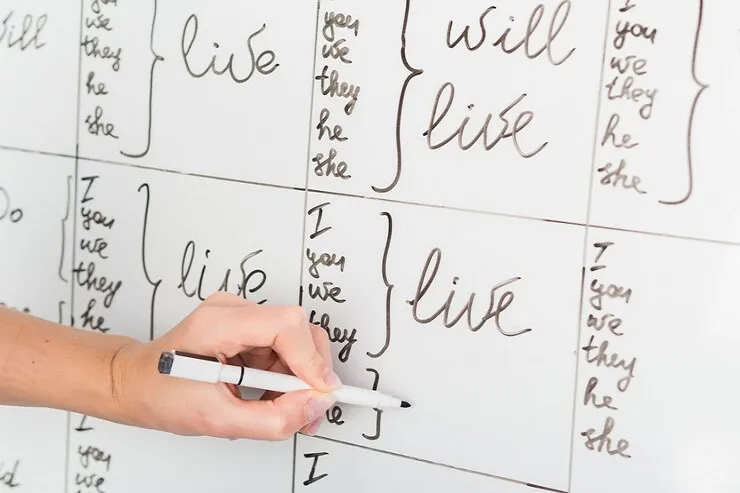 you
we
they
he
she
live
you
we
they
he
she
will
live
I
you
we
they
he
she
I
you
we
they
he
live
I
you
we
they
live
I
you
we
they
he
she
I
you
we
I